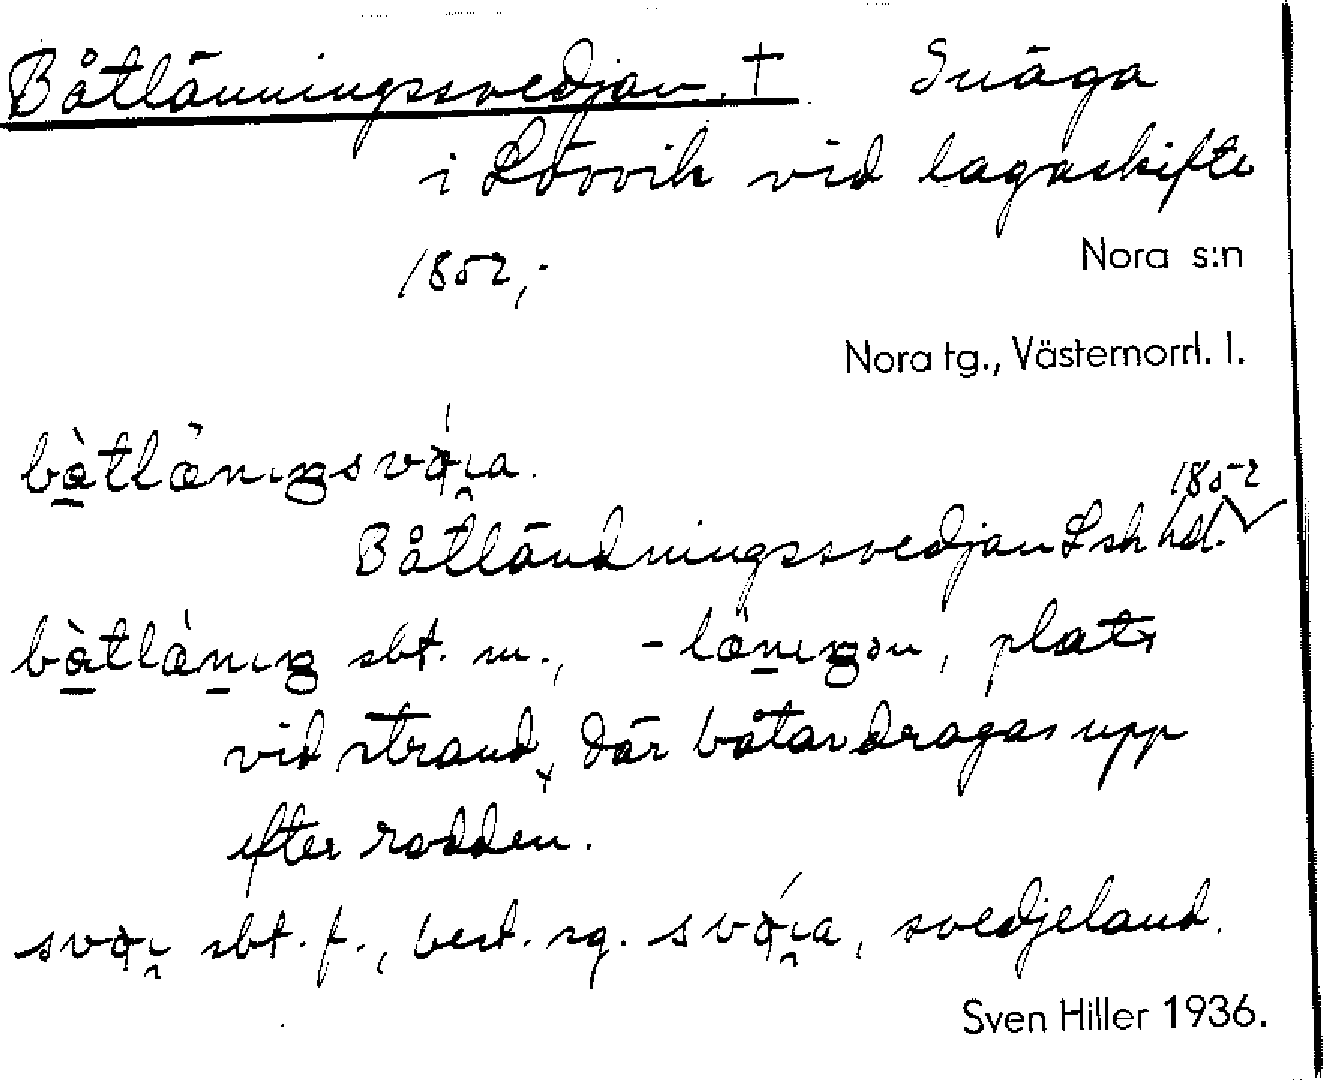 Båtlänningssvedjan. † Småga
i Lövvik vid lagaskifte
1852,-
Nora s:n
Nora tg., Västernorrl. l.
båtlänıŋsväıa.
1852
Båtländningssvedjan Lsk hd.
båtlänıŋ sbt. m., -länıŋən, plats
vid strand, där båtar dragas upp
efter rodden.
sväı sbt. f., best. sg. sväıa, svedjeland.
Sven Hiller 1936.